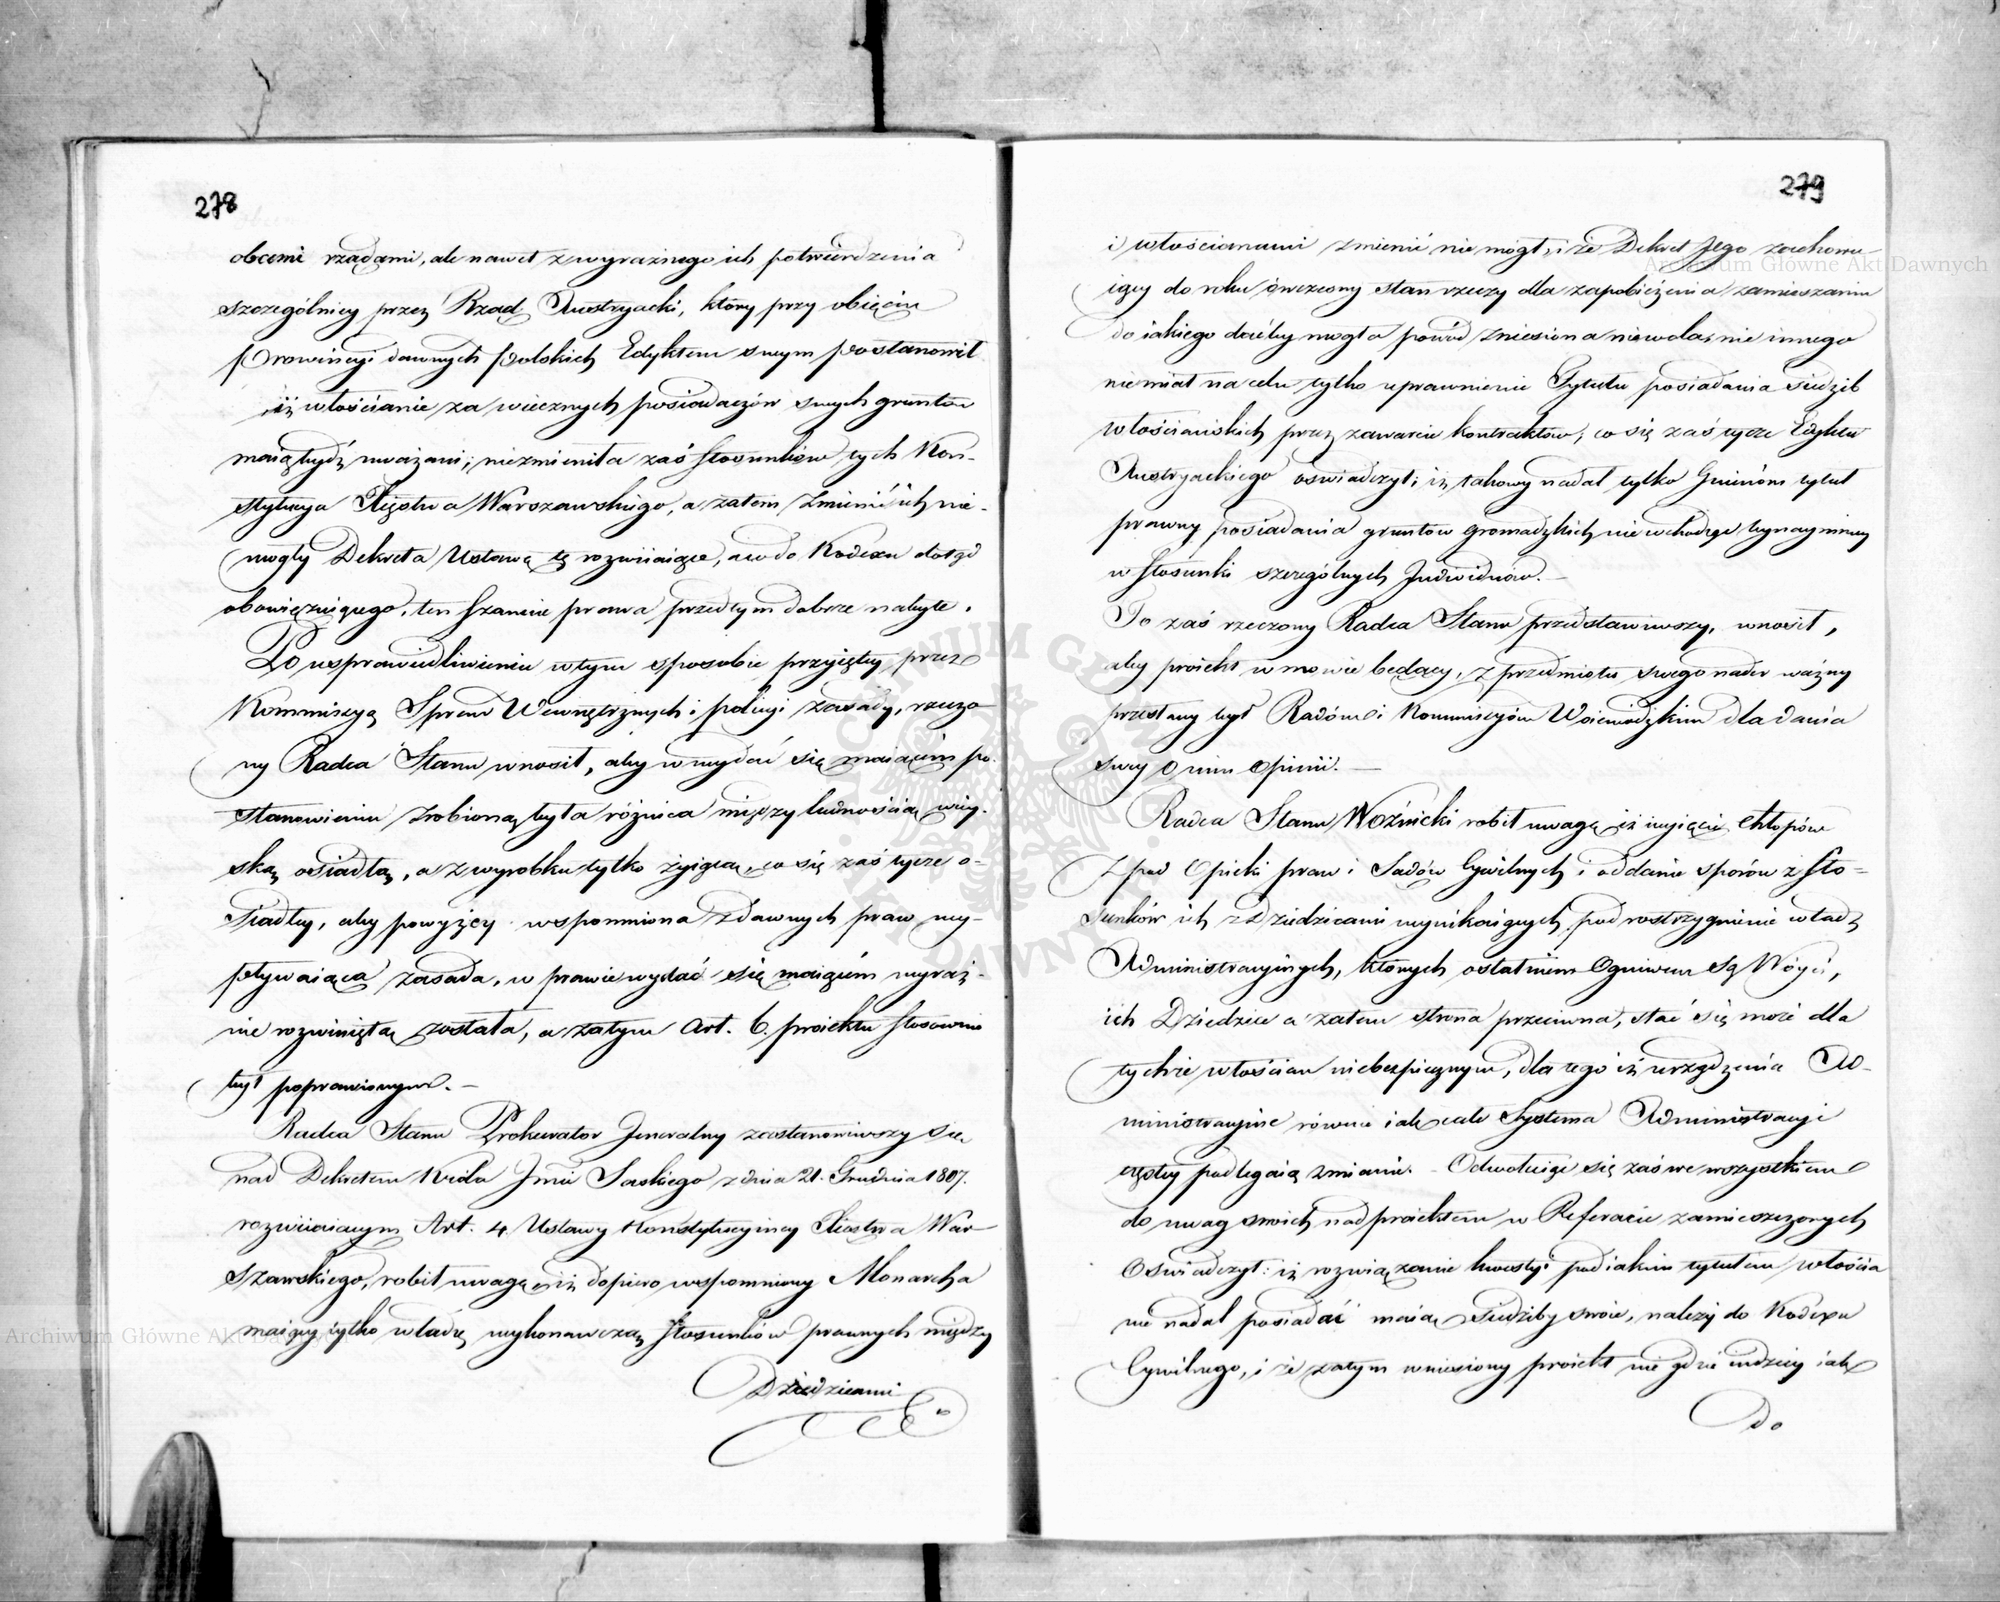 278
obcemi rządami, ale nawet z wyraźnego ich potwierdzenia
szczególniey przez Rząd Austryacki, który przy obięciu
Prowincyi dawnych Polskich Edyktem swym postanowił
iż włościanie za wiecznych posiadaczów swych gruntów
maią bydź uważani; niezmieniła zaś stosunków tych Kon-
stytucya Xięstwa Warszawskiego, a zatem zmienić ich nie-
mogły Dekreta Ustawę tę rozwiiaiące, a w do Kodexu dotąd
obowiązuiącego, ten szanuie prawa przedtym dobrze nabyte.
Po usprawiedliwieniu w tym sposobie przyiętey przez
Kommissyą Spraw Wewnętrznych i policyi zasady, rzeczo
ny Radca Stanu wnosił, aby w wydać się maiącym po-
stanowieniu zrobioną była różnica między ludnością wiey-
ską osiadłą, a z wyrobku tylko żyiącą, co się zaś tycze o-
siadłey, aby powyżey wspomniona z dawnych praw wy-
pływaiąca zasada, w prawie wydać się maiącém wyraź-
nie rozwiniętą została, a zatym Art. 6. proiektu stosownie
był poprawionym. —
Radca Stanu Prokurator Jeneralny zastanowiwszy się
nad Dekretem Króla Jmci Saskiego z dnia 21. Grudnia 1807.
rozwiiaiącym Art. 4 Ustawy Konstytucyiney Xięstwa War-
szawskiego, robił uwagę, iż dopiero wspomniony Monarcha
maiący tylko władzę wykonawczą stosunków prawnych między
Dziedzicami
279
i włościanami zmienić nie mógł, i że Dekret Jego zachowu-
iący do roku ówczesny stan rzeczy dla zapobieżenia zamieszaniu
do iakiego dać by mogła powód zniesiona niewola, nie innego
nie miał na celu tylko uprawnienie Tytułu posiadania siedzib
włościańskich przez zawarcie kontraktów, co się zaś tycze Edyktu
Austryackiego oświadczył, iż takowy nadał tylko Gminóm tytuł
prawny posiadania gruntów gromadzkich nie wchodząc bynaymniey
w stosunki szczególnych Indywiduów. —
To zaś rzeczony Radca Stanu przedstawiwszy, wnosił,
aby proiekt w mowie będący, z przedmiotu swego nader ważny
przesłany był Radóm i Kommissyóm Woiewódzkim dla dania
swey o nim Opinii. —
Radca Stanu Woźnicki robił uwagę iż wyięcie chłopów
z pod Opieki praw i Sądów Cywilnych i oddanie sporów z sto-
sunków ich z Dziedzicami wynikaiących pod rostrzygnienie władz
Administracyinych, których ostatniém Ogniwem są Wóyci,
ich Dziedzice a zatem strona przeciwna, stać się może dla
tychże włościan niebezpiecznym, dla tego iż urządzenia Ad-
ministracyine równie iak całe Systema Administracyi
częstey podlegaią zmianie. — Odwołuiąc się zaś we wszystkiem
do uwag swoich nad proiektem w Referacie zamieszczonych
Oświadczył: iż rozwiązanie kwestyi pod iakim tytułem włościa
nie nadal posiadać maią siedziby swoie, należy do Kodexu
Cywilnego, i że zatym wniesiony proiekt nie gdzie indziey iak
Do
Archiwum Główne Akt Dawnych
Archiwum Główne Akt Dawnych